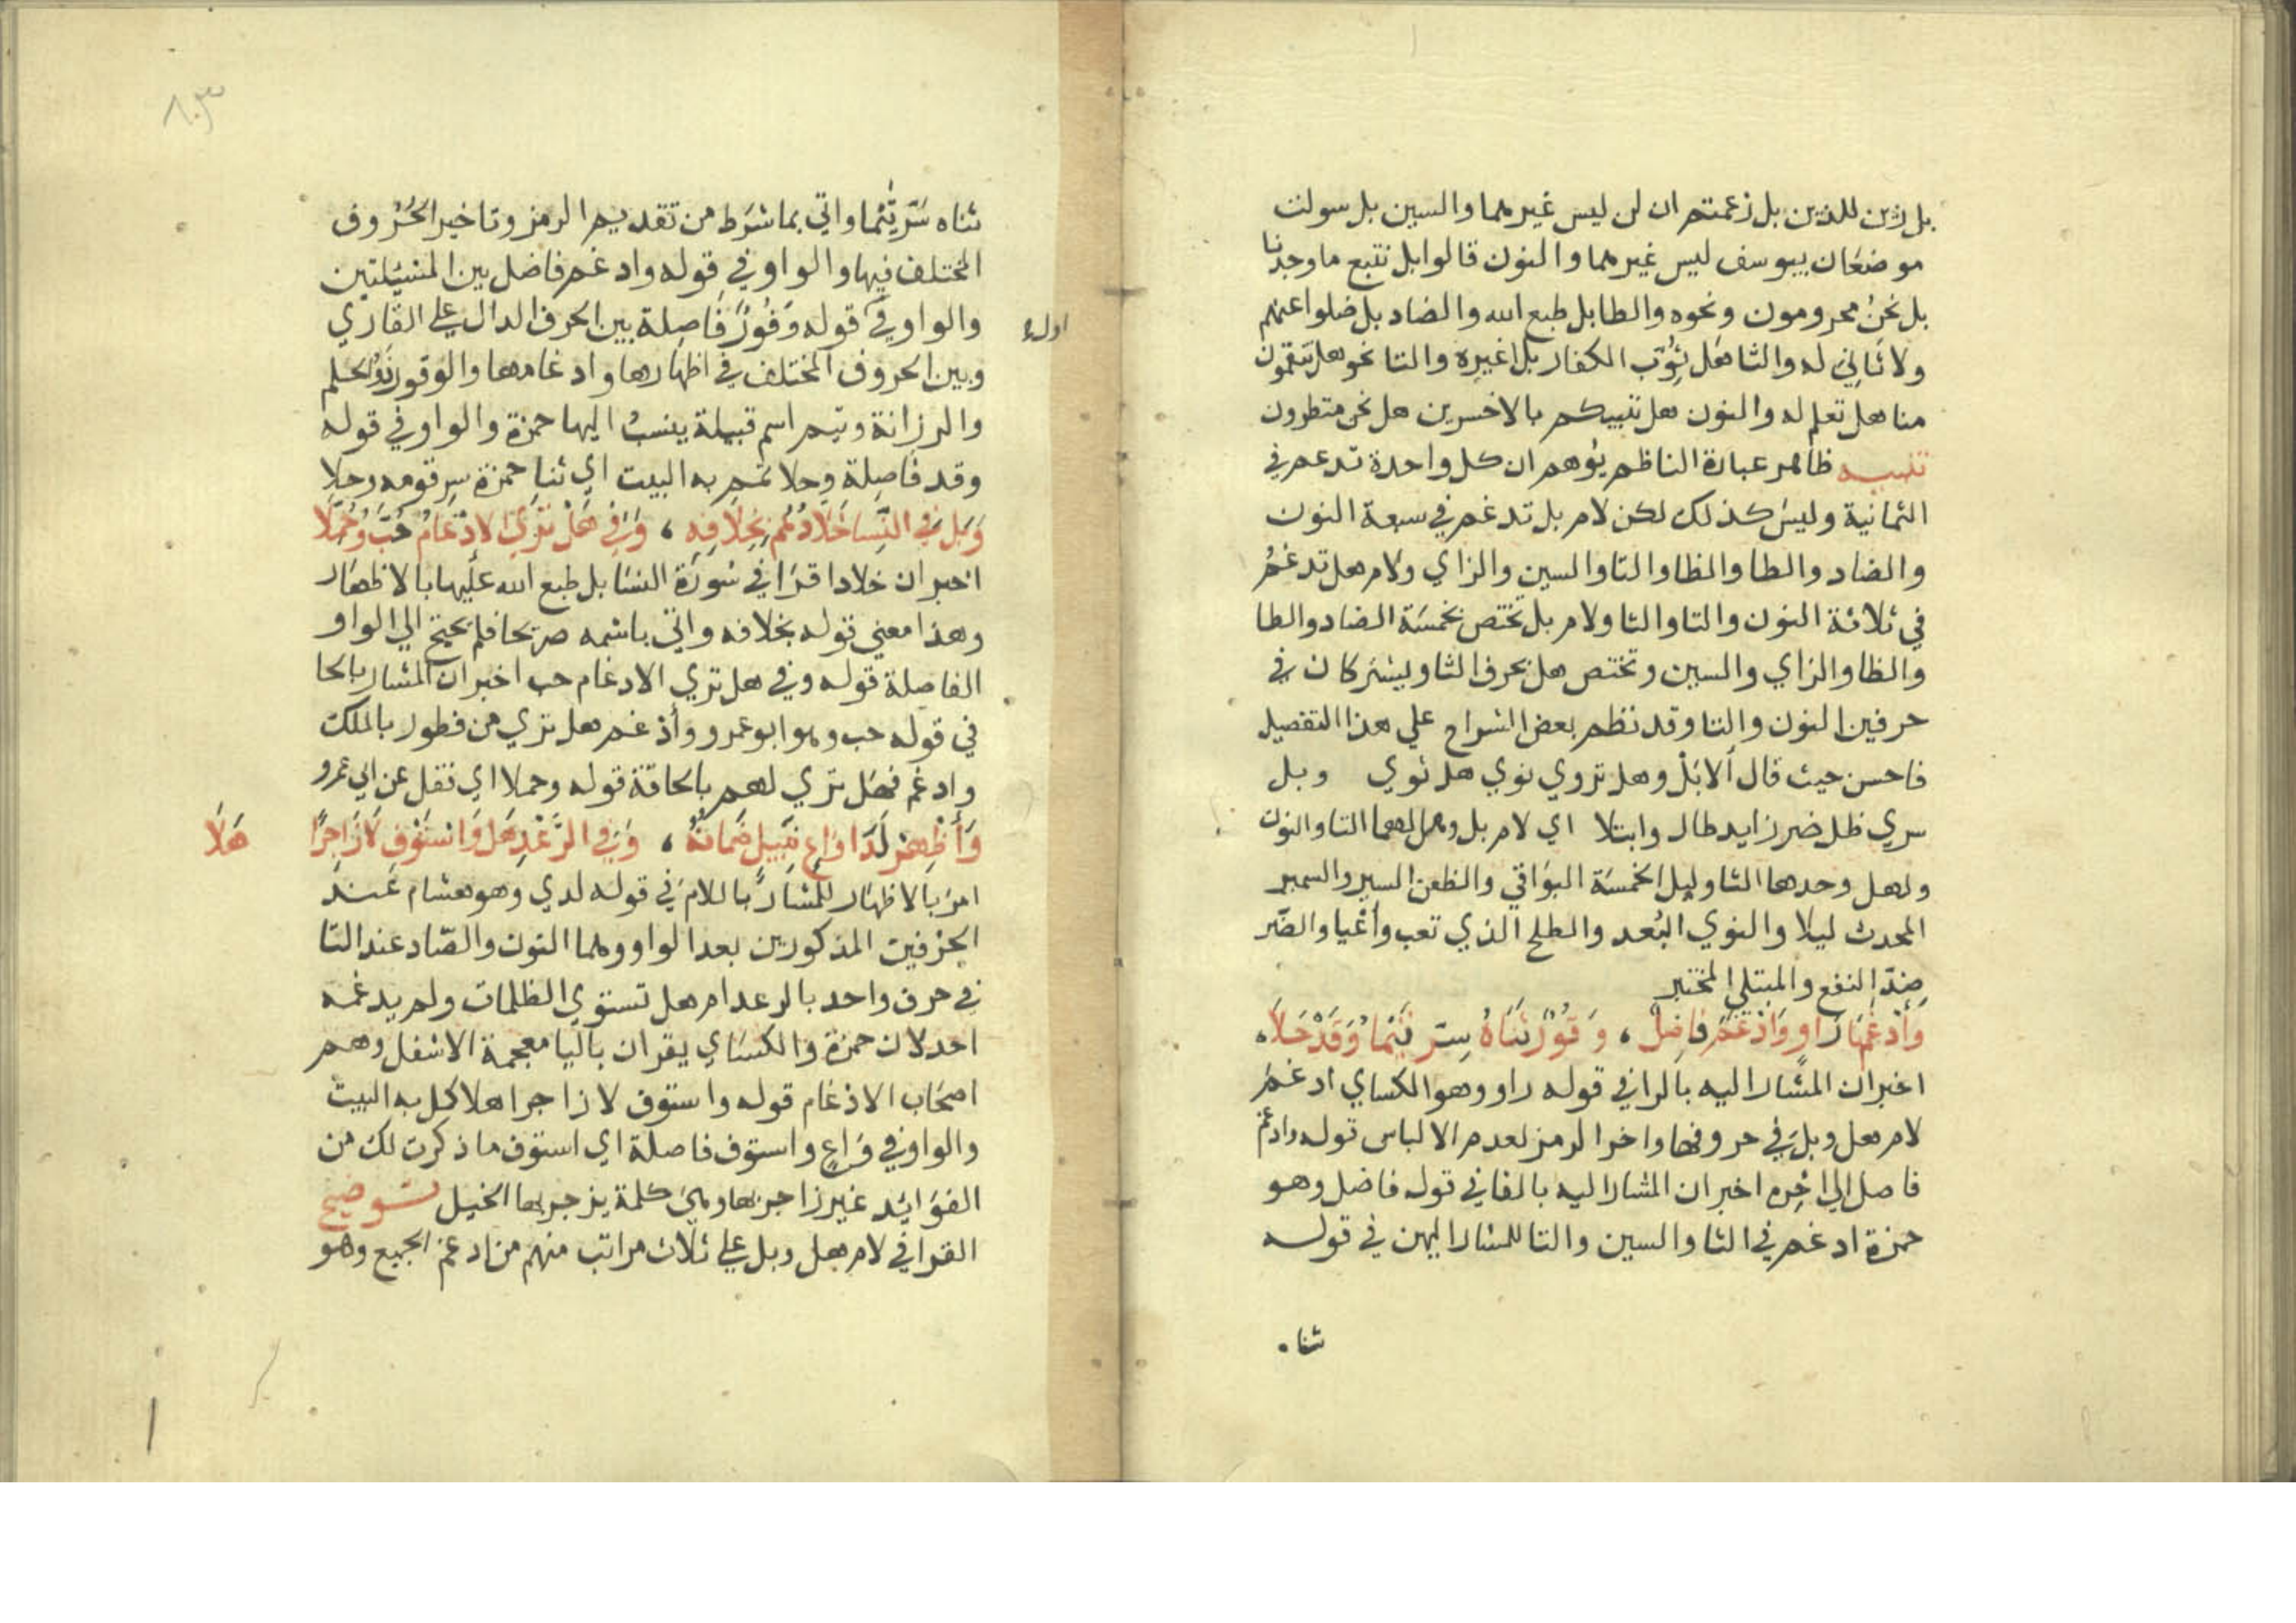 بل زين للذين بل زعمتم ان لن ليس غيرهما والسين بل سولت
موضعان بيوسف ليس غيرهما والنون قالوا بل نتبع ما وجدنا
بل نحن محرومون ونحوه والطا بل طبع الله والضاد بل ضلوا عنهم
ولا ثاني له والثا هل ثوب الكفار بل اغيره والتا نحو هل تنقمون
منا هل تعلم له والنون هل ننبيكم بالاخسرين هل نحن منظرون
تنبيه ظاهر عبارة الناظم يوهم ان كل واحدة تدغم في
الثمانية وليس كذلك لكن لام بل تدغم في سبعة النون
والضاد والطا والظا والتا والسين والزاي ولام هل تدغم
في ثلاثة النون والتا والثا ولام بل تختص بخمسة الضاد والطا
والظا والزاي والسين وتختص هل بحرف الثا ويشتركان في
حرفين النون والتا وقد نظم بعض الشراح علي هذا التفصيل
فاحسن حيث قال ألا بل وهل تروي نوي هل ثوي وبل
سري ظل ضر زايد طال وابتلا اي لام بل وهل لهما التا والنون
ولهل وحدها الثا ولبل الخمسة البواقي والظعن السير والسمير
المحدث ليلا والنوي البعد والطلح الذي تعب وأعيا والضر
ضد النفع والمبتلي المختبر
وَأَدْغَمَهَا رَاوٍ وَأَدْغَمَ فَاضِلٌ ، وَقُورٌ ثَنَاهُ سَرَّ تَيْمًا وَقَدْ حَلَا ،
اخبر ان المشار اليه بالرا في قوله راو وهو الكساي ادغم
لام هل وبل في حروفها واخر الرمز لعدم الالباس قوله وادغم
فاصل الي اخره اخبر ان المشار اليه بالفا في قوله فاضل وهو
حمزة ادغم في الثا والسين والتا المشار اليهن في قوله
ثنا .
٨٠٣
ثناه سر تيما واتي بما شرط من تقديم الرمز وتاخير الحروف
المختلف فيها والواو في قوله وادغم فاضل بين المسئلتين
والواو في قوله وقور فاصلة بين الحرف الدال علي القاري
اوله
وبين الحروف المختلف في اظهارها وادغامها والوقور ذو الحلم
والرزانة وتيم اسم قبيلة ينسب اليها حمزة والواو في قوله
وقد فاصلة وحلا تمم به البيت اي ثنا حمزة سر قومه وحلا
وَبَلْ فِي النِّسَا خَلَّادُهُمْ بِخِلَافِهِ ، وَفِي هَلْ تَرَى الادْغَامُ حُبَّ وَحُمِّلَا
اخبر ان خلادا قرا في سورة النسا بل طبع الله عليها بالاظهار
وهذا معني قوله بخلافه واتي باسمه صريحا فلم يحتج الي الواو
الفاصلة قوله وفي هل تري الادغام حب اخبر ان المشار بالحا
في قوله حب وهو ابو عمرو وأدغم هل تري من فطور بالملك
وادغم فهل تري لهم بالحاقة قوله وحملا اي نقل عن ابي عمرو
وَأَظْهِرْ لَدَا وَاعٍ نَبِيلٍ ضَمَانُهُ ، وَفِي الرَّعْدِ هَلْ وَاسْتَوْفِ لَا زَاجِرًا هَلَا
امر بالاظهار للمشار باللام في قوله لدي وهو هشام عند
الحرفين المذكورين بعد الواو وهما النون والضاد عند التا
في حرف واحد بالرعد ام هل تستوي الظلمات ولم يدغمه
احد لان حمزة والكساي يقران باليا معجمة الاسفل وهم
اصحاب الادغام قوله واستوف لا زاجرا هلا كمل به البيت
والواو في واع واستوف فاصلة اي استوف ما ذكرت لك من
الفوايد غير زاجر بها وهي كلمة يزجر بها الخيل توضيح
القرا في لام هل وبل علي ثلاث مراتب منهم من ادغم الجميع وهو